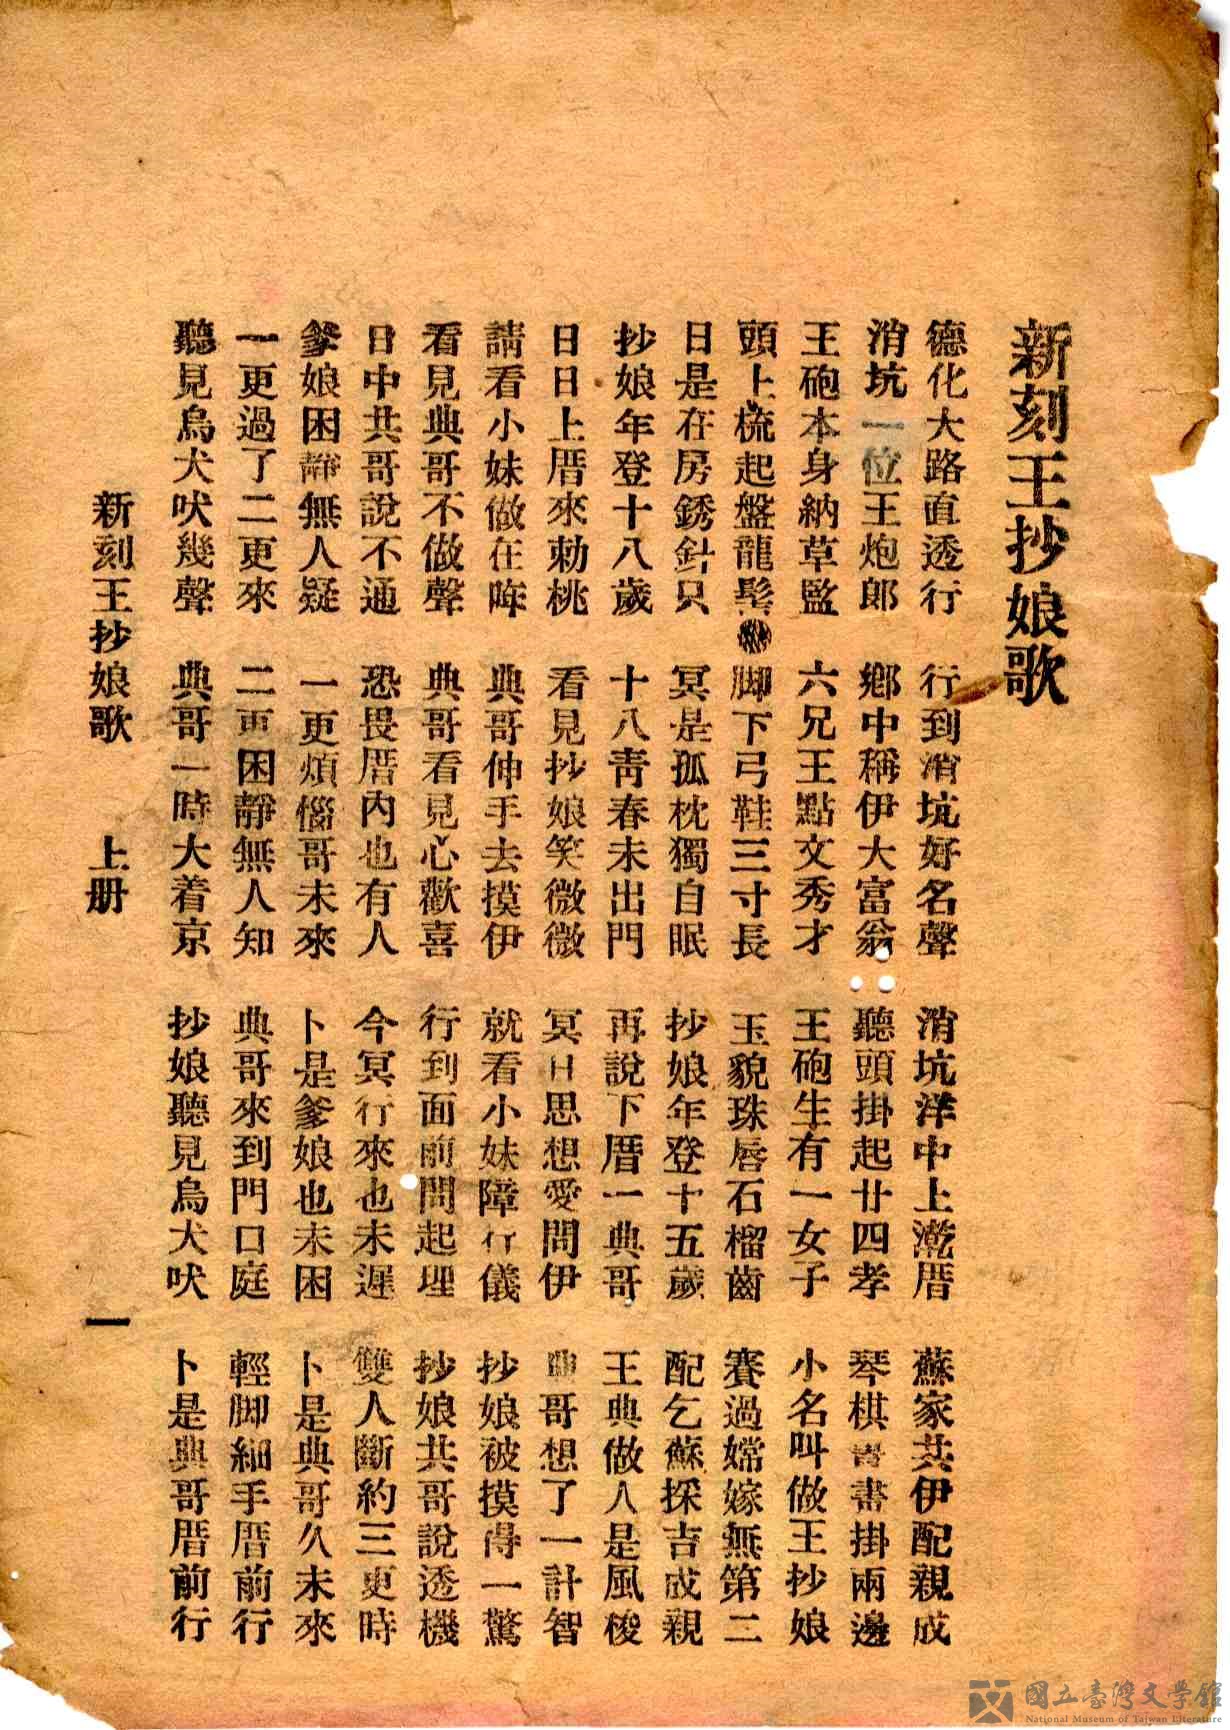 新刻王抄娘歌
德化大路直透行　行到消坑好名聲　消坑洋中上漧厝　蘇家共伊配親成
消坑一位王炮郎　鄉中稱伊大富翁　聽頭掛起廿四孝　琴棋書掛兩邊
王砲本身納草監　六兄王點文秀才　王砲生有一女子　小名叫做王抄娘
頭上梳起盤龍髻　脚下弓鞋三寸長　玉貌珠唇石榴齒　賽過嫦嫁無第二
日是在房銹針只　冥是孤枕獨自眠　抄娘年登十五歲　配乞蘇探吉成親
抄娘年登十八歲　十八靑春未出門　再說下厝一典哥　王典做人是風梭
日日上厝來勅桃　看見抄娘笑微微　冥日思想愛問伊　典哥想了一計智
請看小妹做在哖　典哥伸手去摸伊　就看小妹障行儀　抄娘被摸得一驚
看見典哥不做聲　典哥看見心歡喜　行到面前問起理　抄娘共哥說透機
日中共哥說不通　恐畏厝內也有人　今冥行來也未遲　雙人斷約三更時
爹娘困靜無人疑　一更煩惱哥未來　卜是爹娘也未困　卜是典哥久未來
一更過了二更來　二更困靜無人知　典哥來到門口庭　輕脚細手厝前行
聽見烏犬吠幾聲　典哥一時大着京　抄娘聽見烏犬吠　卜是典哥厝前行
新刻王抄娘歌　上册　一
國立臺灣文學館
National Museum of Taiwan Literature